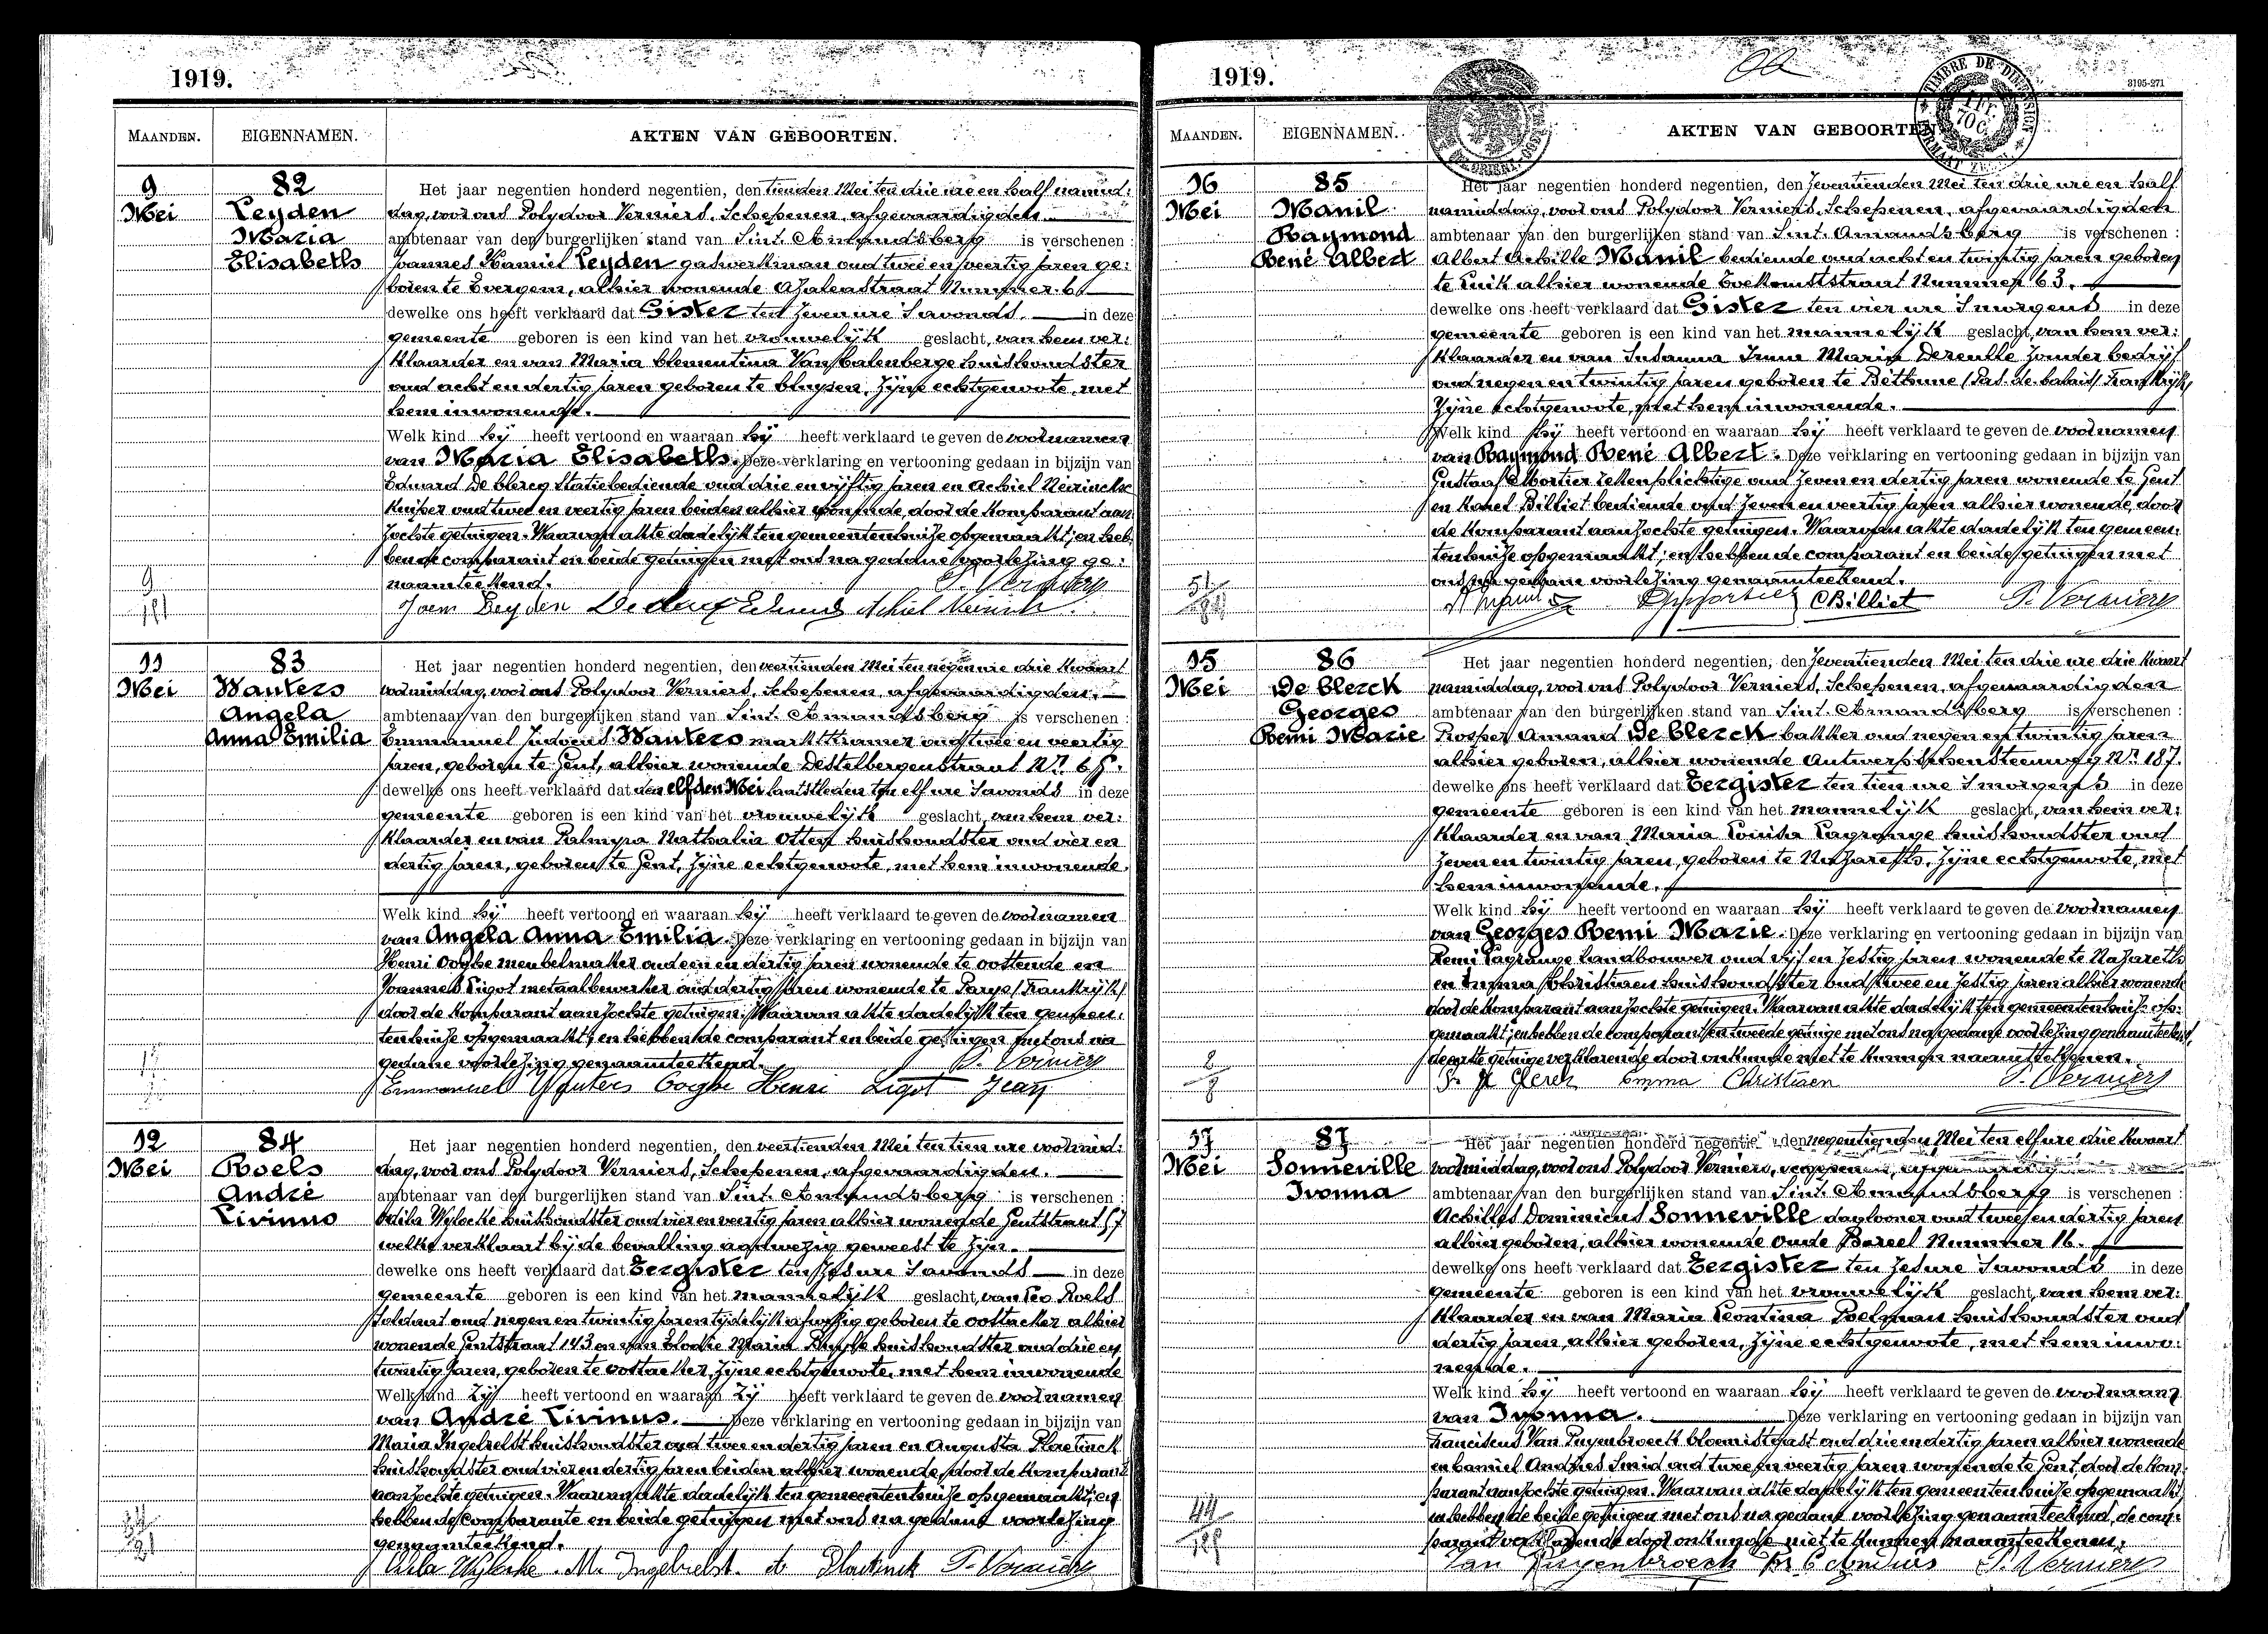 1919.
MAANDEN. EIGENNAMEN. AKTEN VAN GEBOORTEN.
9 Mei
82
Leyden
Maria
Elisabeth
Het jaar negentien honderd negentien, den tienden Mei ten drie ure en half namid:
dag, voor ons Polydoor Verniers, Schepenen, afgevaardigden
ambtenaar van den burgerlijken stand van Sint. Amandsberg is verschenen :
Joannes Kamiel Leyden gaswerkman oud twee en veertig jaren ge:
boren te Evergem, alhier wonende Azaleastraat Nummer 6
dewelke ons heeft verklaard dat Gister ten zeven ure s'avonds in deze
gemeente geboren is een kind van het vrouwelijk geslacht, van hem ver:
klaarder en van Maria Clementina Van Calenberge huishoudster
oud acht en dertig jaren geboren te Cluysen, zijne echtgenoote, met
hem inwonende.
Welk kind hij heeft vertoond en waaraan hij heeft verklaard te geven de voornamen
van Maria Elisabeth. Deze verklaring en vertooning gedaan in bijzijn van
Eduard De Clercq statiebediende oud drie en vijftig jaren en Achiel Neirinckx
kuiper oud twee en veertig jaren beiden alhier wonende, door de komparant aan:
zochte getuigen. Waarvan akte dadelijk ten gemeentenhuize opgemaakt; en heb:
ben de comparant en beide getuigen met ons na gedane voorlezing ge:
naamteekend. P. Verniers
Joan Leyden De Clercq Eduard Achiel Neirinck
11 Mei
83
Wauters
Angela
Anna Emilia
Het jaar negentien honderd negentien, den veertienden Mei ten negen ure drie kwaart
voormiddag, voor ons Polydoor Verniers, Schepenen, afgevaardigden,
ambtenaar van den burgerlijken stand van Sint. Amandsberg is verschenen :
Emmanuel Judocus Wauters marktkramer oud twee en veertig
jaren, geboren te Gent, alhier wonende Destelbergenstraat Nr.
dewelke ons heeft verklaard dat den elfden Mei laatstleden ten elf ure s'avonds in deze
gemeente geboren is een kind van het vrouwelijk geslacht, van hem ver:
klaarder en van Palmyra Nathalia Otten huishoudster oud vier en
dertig jaren, geboren te Gent, zijne echtgenoote, met hem inwonende.
Welk kind hij heeft vertoond en waaraan hij heeft verklaard te geven de voornamen
van Angela Anna Emilia. Deze verklaring en vertooning gedaan in bijzijn van
Henri Ooghe meubelmaker oud een en dertig jaren wonende te Oostende en
Joannes Ligot metaalbewerker oud dertig jaren wonende te Parys (Frankrijk)
door de komparant aanzochte getuigen. Waarvan akte dadelijk ten gemeen:
tenhuize opgemaakt; en hebben de comparant en beide getuigen met ons na
gedane voorlezing genaamteekend. P. Verniers
Emmanuel Wauters Ooghe Henri Ligot Jean
12 Mei
84
Roels
André
Livinus
Het jaar negentien honderd negentien, den veertienden Mei ten tien ure voormid:
dag, voor ons Polydoor Verniers, Schepenen, afgevaardigden.
ambtenaar van den burgerlijken stand van Sint. Amandsberg is verschenen :
Odila Wylocke huishoudster oud vier en veertig jaren alhier wonende Gentstraat 57
welke verklaart bij de bevalling aanwezig geweest te zijn.
dewelke ons heeft verklaard dat Eergister ten zes ure s'avonds in deze
gemeente geboren is een kind van het mannelijk geslacht, van Leo Roels
soldaat oud negen en twintig jaren tijdelijk afwezig geboren te Oostacker alhier
wonende Gentstraat 143 en van Elodie Maria huishoudster oud drie en
twintig jaren, geboren te Oostacker, zijne echtgenoote, met hem inwonende
Welk kind zij heeft vertoond en waaraan zij heeft verklaard te geven de voornamen
van André Livinus. Deze verklaring en vertooning gedaan in bijzijn van
Maria Ingelrelst huishoudster oud twee en dertig jaren en Augusta Plaetinck
huishoudster oud vier en dertig jaren beiden alhier wonende, door de komparant
aanzochte getuigen. Waarvan akte dadelijk ten gemeentenhuize opgemaakt; en
hebben de comparante en beide getuigen met ons na gedane voorlezing
genaamteekend.
Odila Wylocke. M. Ingelrelst. P. Verniers
1919.
TIMBRE DE DIMENSION
3195-271
MAANDEN. EIGENNAMEN. AKTEN VAN GEBOORTEN
16 Mei
85
Manil
Raymond
René Albert
Het jaar negentien honderd negentien, den zeventienden Mei ten drie ure en half
namiddag, voor ons Polydoor Verniers, Schepenen, afgevaardigden
ambtenaar van den burgerlijken stand van Sint. Amandsberg is verschenen :
Albert Achille Manil bediende oud acht en twintig jaren geboren
te Luik alhier wonende Toekomststraat Nummer 63.
dewelke ons heeft verklaard dat Gister ten vier ure s'morgens in deze
gemeente geboren is een kind van het mannelijk geslacht, van hem ver:
klaarder en van Susanna Irma Maria Dereulle zonder bedrijf
oud negen en twintig jaren geboren te Béthune (Pas-de-Calais) Frankrijk,
zijne echtgenoote, met hem inwonende.
Welk kind hij heeft vertoond en waaraan hij heeft verklaard te geven de voornamen
van Raymond René Albert. Deze verklaring en vertooning gedaan in bijzijn van
Gustaaf Mortier oud zeven en dertig jaren wonende te Gent
en Karel Billiet bediende oud zeven en veertig jaren alhier wonende, door
de komparant aanzochte getuigen. Waarvan akte dadelijk ten gemeen:
tenhuize opgemaakt; en hebben de comparant en beide getuigen met
ons na gedane voorlezing genaamteekend.
CBilliet P. Verniers
15 Mei
86
De Clerck
Georges
Remi Marie
Het jaar negentien honderd negentien, den zeventienden Mei ten drie ure drie kwaart
namiddag, voor ons Polydoor Verniers, Schepenen, afgevaardigden
ambtenaar van den burgerlijken stand van Sint. Amandsberg is verschenen :
Prosper Amand De Clerck bakker oud negen en twintig jaren
alhier geboren, alhier wonende Antwerpschensteenweg Nr. 187.
dewelke ons heeft verklaard dat Eergister ten tien ure s'morgens in deze
gemeente geboren is een kind van het mannelijk geslacht, van hem ver:
klaarder en van Maria Louisa Lagrange huishoudster oud
zeven en twintig jaren, geboren te Nazareth, zijne echtgenoote, met
hem inwonende.
Welk kind hij heeft vertoond en waaraan hij heeft verklaard te geven de voornamen
van Georges Remi Marie. Deze verklaring en vertooning gedaan in bijzijn van
Remi Lagrange landbouwer oud vijf en zestig jaren wonende te Nazareth
en Emma Christiaen huishoudster oud twee en zestig jaren alhier wonende
door de komparant aanzochte getuigen. Waarvan akte dadelijk ten gemeentenhuize op:
gemaakt; en hebben de comparant en tweede getuige met ons na gedane voorlezing genaamteekend,
de eerste getuige verklarende door onkunde niet te kunnen naamteekenen.
Emma Christiaen P. Verniers
17 Mei
87
Sonneville
Ivonna
Het jaar negentien honderd negentien, den negentienden Mei ten elf ure drie kwaart
voormiddag, voor ons Polydoor Verniers,
ambtenaar van den burgerlijken stand van Sint. Amandsberg is verschenen :
Achilles Dominicus Sonneville daglooner oud twee en dertig jaren
alhier geboren, alhier wonende Oude Bareel Nummer 16.
dewelke ons heeft verklaard dat Eergister ten zes ure s'avonds in deze
gemeente geboren is een kind van het vrouwelijk geslacht, van hem ver:
klaarder en van Maria Leontina Poelman huishoudster oud
dertig jaren, alhier geboren, zijne echtgenoote, met hem inwo:
nende.
Welk kind hij heeft vertoond en waaraan hij heeft verklaard te geven de voornaam
van Ivonna. Deze verklaring en vertooning gedaan in bijzijn van
Franciscus Van Puymbroeck bloemistgast oud drie en dertig jaren alhier wonende
en Camiel Andries smid oud twee en veertig jaren wonende te Gent, door de kom:
parant aanzochte getuigen. Waarvan akte dadelijk ten gemeentenhuize opgemaakt,
en hebben de beide getuigen met ons na gedane voorlezing genaamteekend, de com:
parant verklarende door onkunde niet te kunnen naamteekenen.
P. Verniers